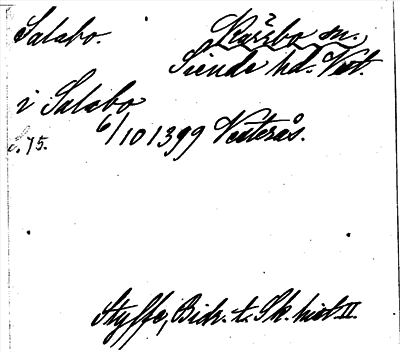 Salabo.
Skäržbo sn.
Siende hd. Vstl.
i Salabo
6/10 1399 Vesterås.
s. 75.
Styffe, Bidr. t. Sk. hist II.